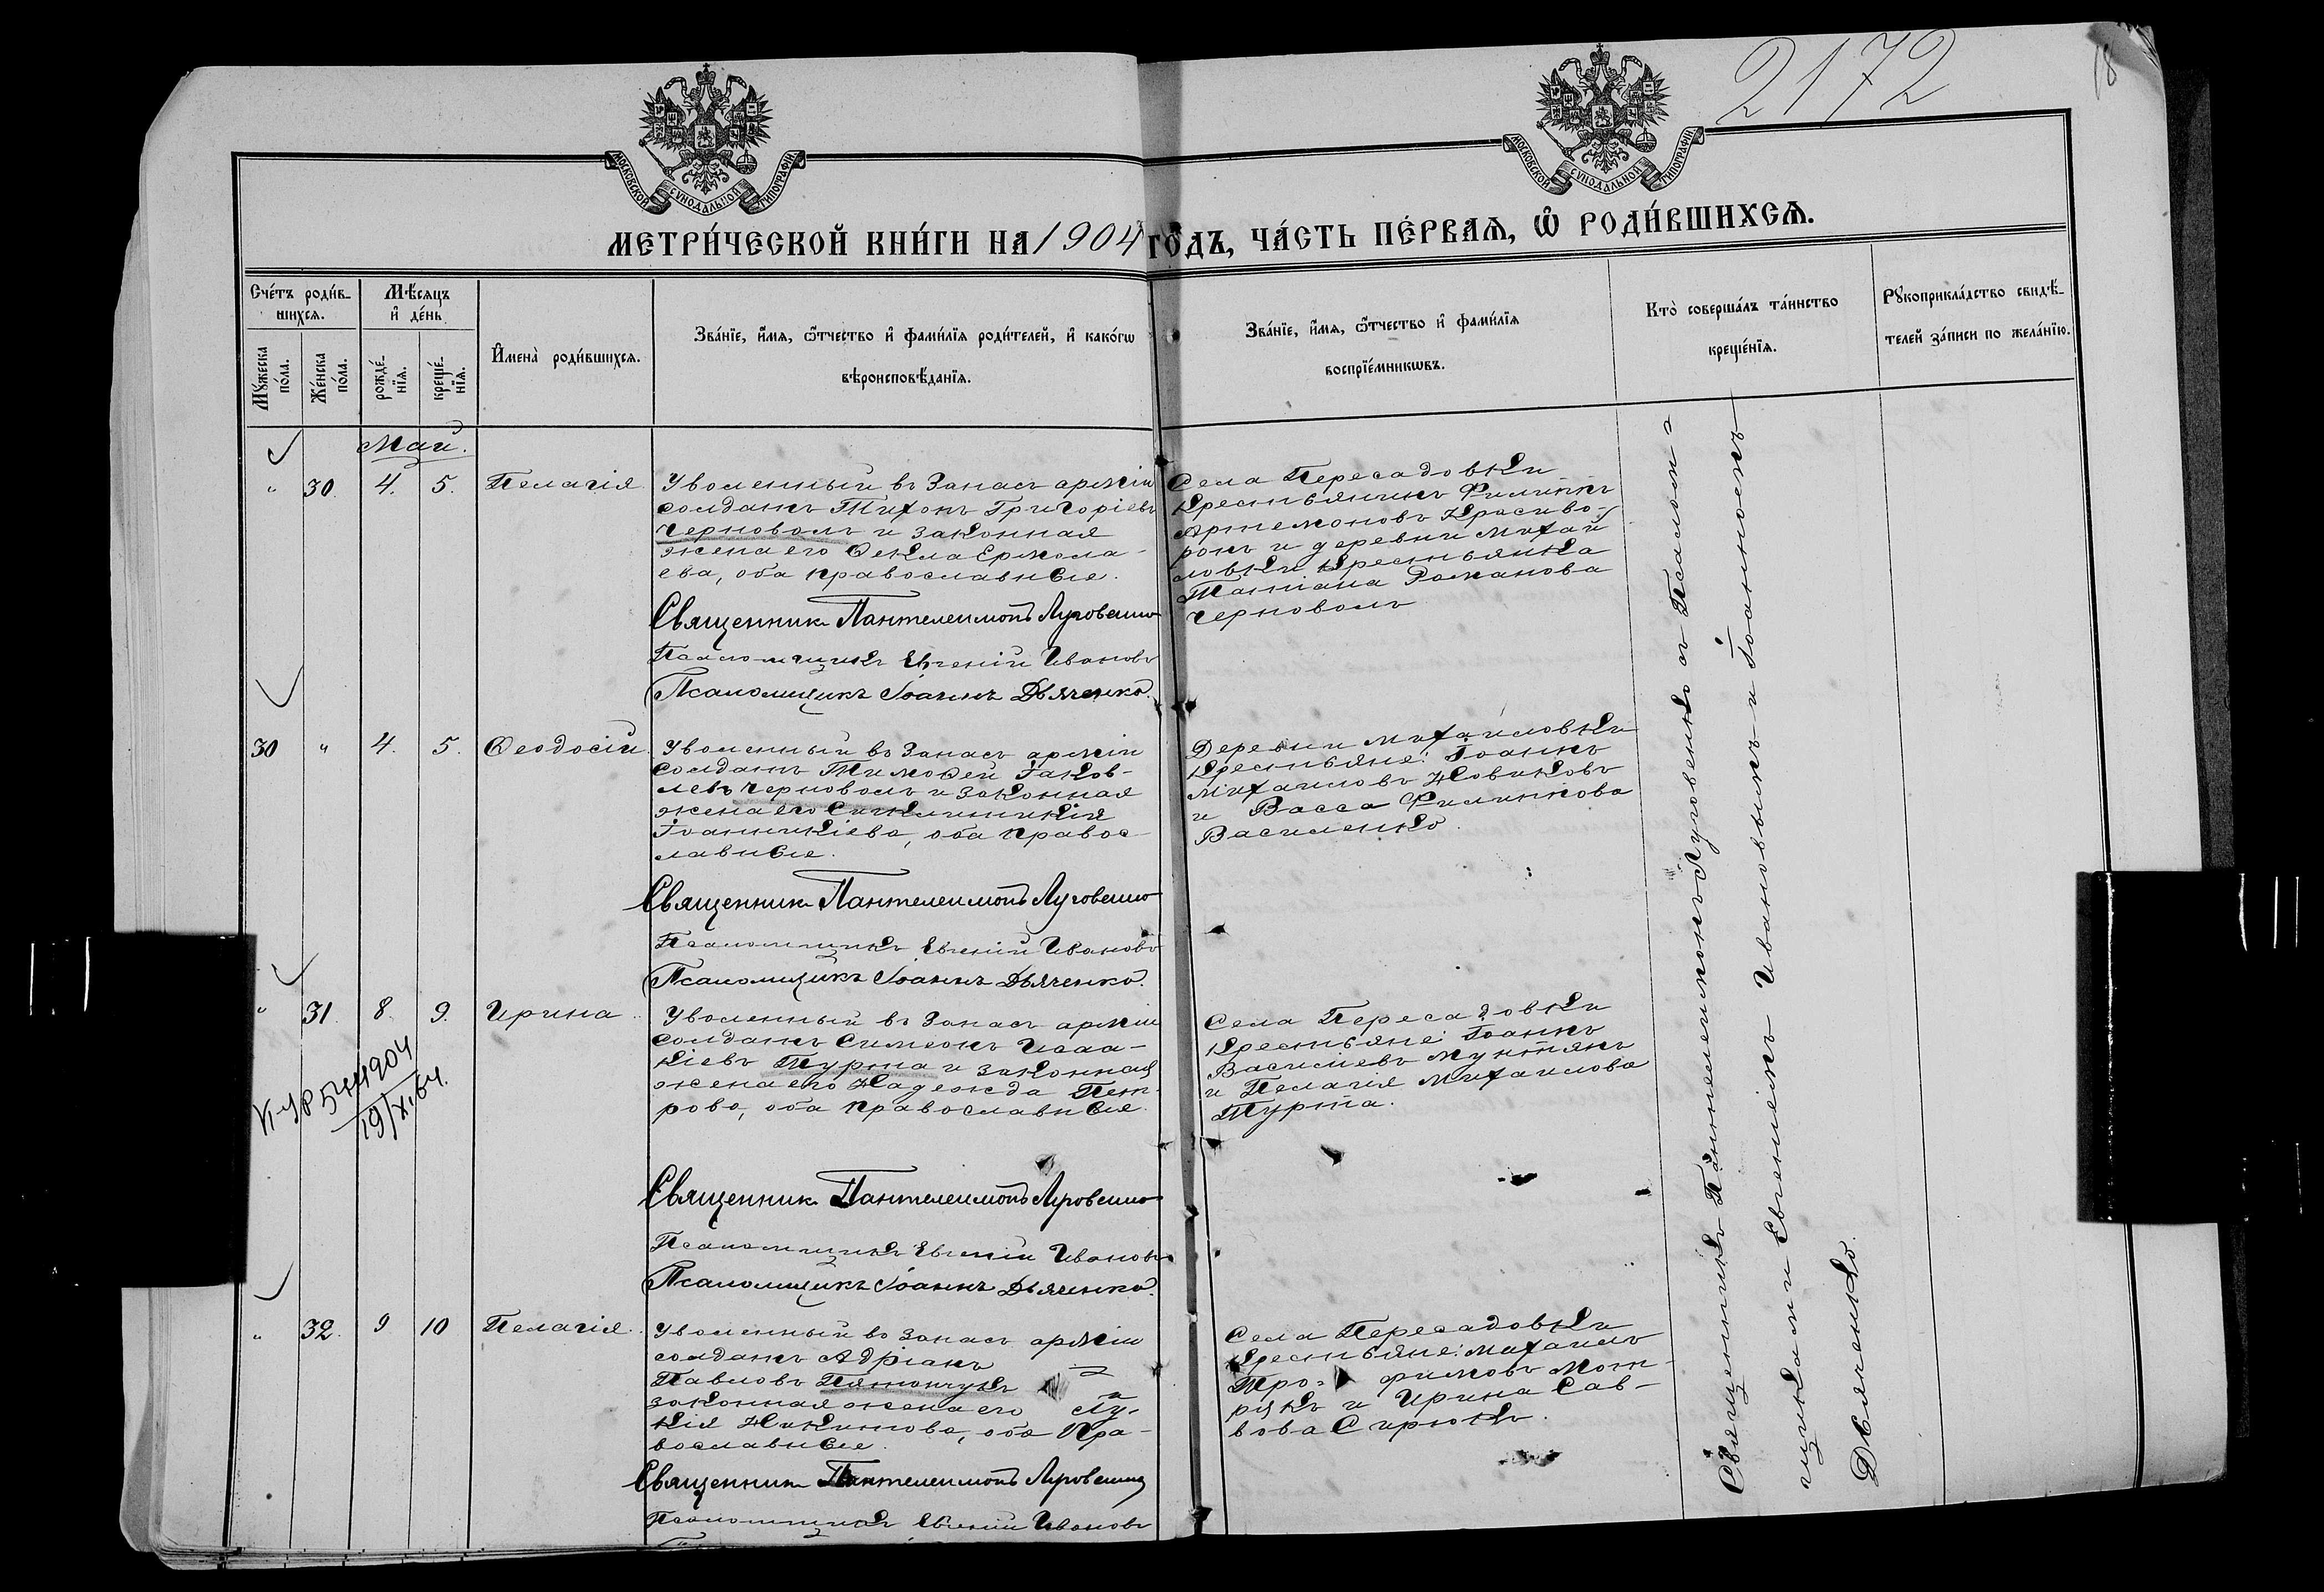 2172
18
МОСКОВСКОЙ СѴНОДАЛЬНОЙ ТИПОГРАФІИ
МОСКОВСКОЙ СѴНОДАЛЬНОЙ ТИПОГРАФІИ
МЕТРИ́ЧЕСКОЙ КНИ́ГИ НА 1904 ГО́ДЪ, ЧА́СТЬ ПЕ́РВАѦ, Ѡ РОДИ́ВШИХСѦ.
Сче́тъ роди́в-
шихсѧ.
Мѣ́сѧцъ
и҆ де́нь
Мꙋ́жеска
по́ла.
Же́нска
по́ла.
рожде́-
нїѧ.
креще́-
нїѧ.
И҆мена̀ роди́вшихсѧ.
Зва́нїе, и҆́мѧ, ѻ҆́тчество и҆ фами́лїѧ роди́телей, и҆ како́гѡ
вѣроисповѣ́данїѧ.
Зва́нїе, и҆́мѧ, ѻ҆́тчество и҆ фами́лїѧ
воспрїе́мникѡвъ.
Кто̀ соверша́лъ та́инство
креще́нїѧ.
Рꙋкоприкла́дство свидѣ́-
телей за́писи по жела́нїю.
Май.
" 30. 4. 5. Пелагія
Уволенный въ Запасъ арміи
солдатъ Тихонъ Григоріевъ
Черноволъ и законная
жена его Ѳекла Ермола-
ева, оба православные.
Священник Пантелеимонъ Луговенко
Псаломщикъ Евгеній Ивановъ
Псаломщикъ Іоаннъ Дьяченко.
Села Пересадовки
крестьянинъ Филиппъ
Артемоновъ Красиво-
ронъ и деревни Михай
ловки крестьянка
Татіана Романова
Черноволъ
30 " 4. 5. Ѳеодосій
Уволенный въ Запасъ арміи
солдатъ Тимоѳей Іаков-
левъ Черноволъ и законная
жена его Синклитикія
Іоанникіева, оба правос-
лавные.
Священник Пантелеимонъ Луговенко
Псаломщикъ Евгеній Ивановъ
Псаломщикъ Іоаннъ Дьяченко.
Деревни Михайловки
крестьяне: Іоаннъ
Михаиловъ Новиковъ
и Васса Филиппова
Василенко.
" 31 8. 9. Ирина
Уволенный въ Запасъ арміи
солдатъ Симеонъ Исаа-
кіевъ Турта и законная
жена его Надежда Пет-
рова, оба православные.
19/XI 64.
Священник Пантелеимонъ Луговенко
Псаломщикъ Евгеній Ивановъ
Псаломщикъ Іоаннъ Дьяченко.
Села Пересадовки
крестьяне: Іоаннъ
Василіевъ Мунтянъ
и Пелагія Михаилова
Турта.
" 32. 9 10 Пелагія
Уволенный въ Запасъ арміи
солдатъ Адріанъ
Павловъ и
законная жена его Лу-
кія Никитова, оба пра-
вославные.
Священник Пантелеимонъ Луговенко
Псаломщикъ Евгеній Ивановъ
Села Пересадовки
крестьяне: Михаилъ
Тро- фимовъ Мот-
рукъ и Ирина Сав-
вова Сирюкъ.
Священникъ Пантелеимонъ Луговенко съ Псалом-
щиками Евгеніемъ Ивановымъ и Іоанномъ
Дьяченко.